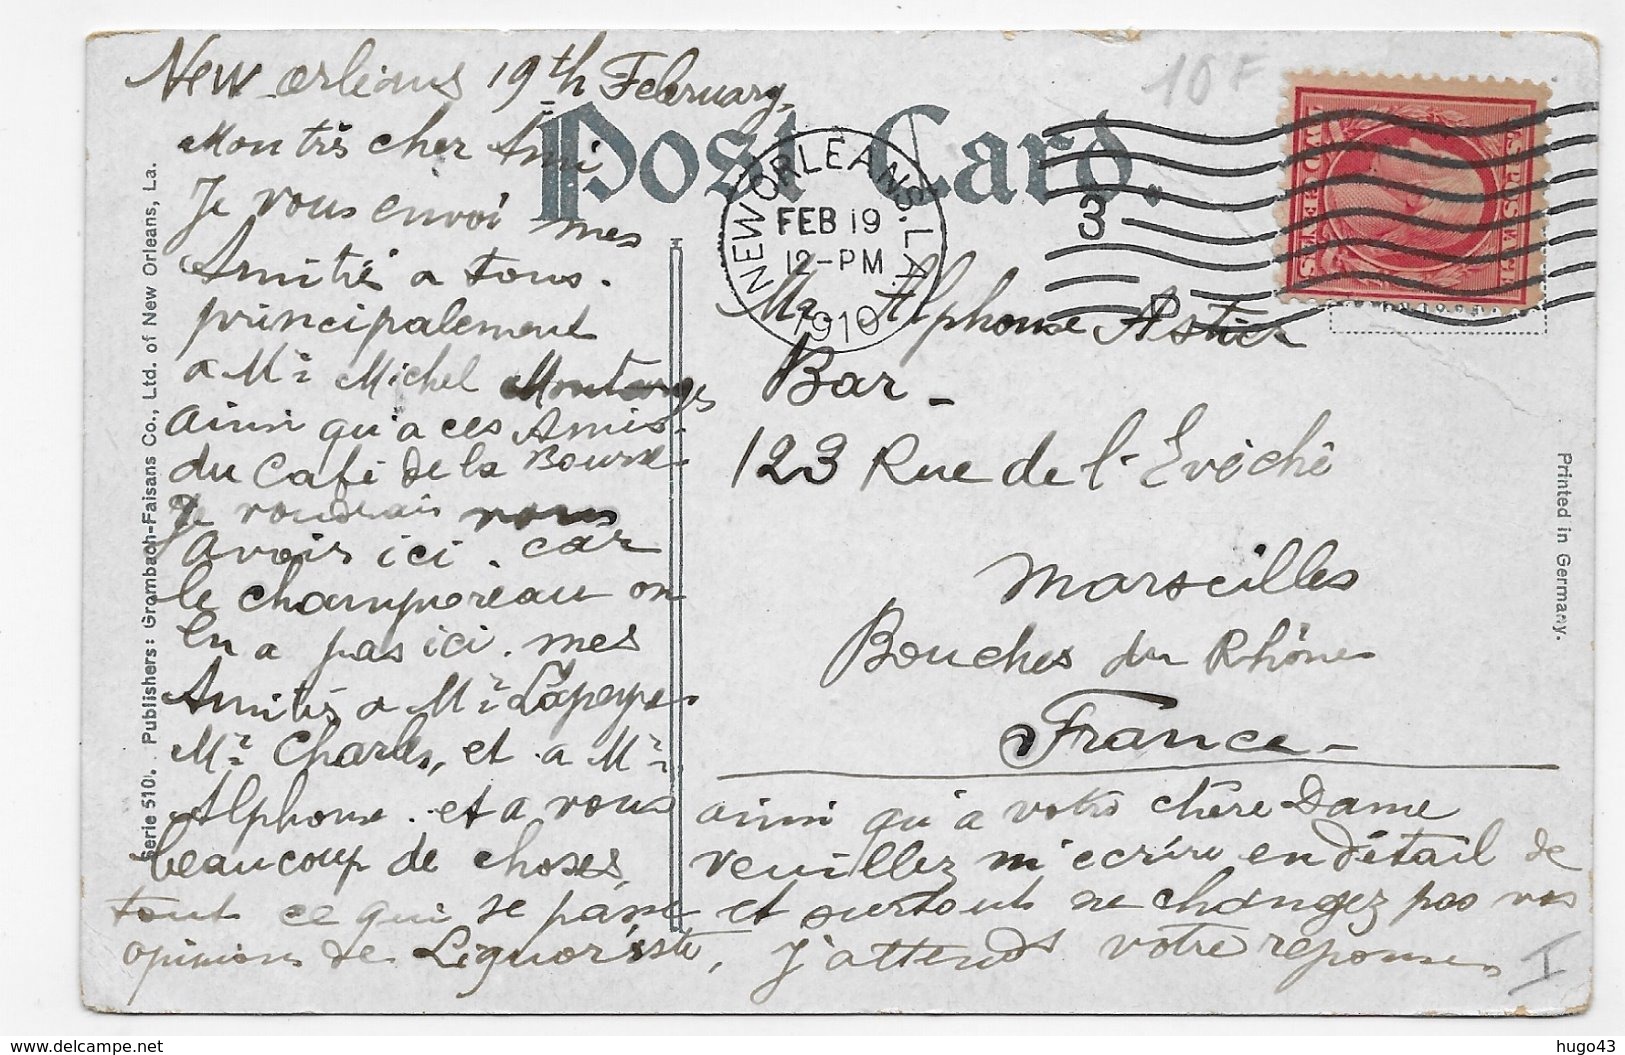 New Orléans 19th February
10 F
Post Card.
NEW ORLEANS, LA.
FEB 19
12-PM
1910
3
U.S. POSTAGE
TWO CENTS
Mon très cher Ami
Je vous envoi mes
Amitié a tous.
principalement
a Mr Michel
ainsi qu'a ces Amis
du Café de la Bourse
Je voudrais vous
avoir ici. car
le champoreau on
en a pas ici. mes
Amitiés a Mr Lapeyre
Mr Charles, et a Mr
Alphonse. et a vous
beaucoup de choses,
ainsi qu'a votre chère Dame
veuillez m'ecrire en détail de
tout ce qui se passe et surtout ne changez pas vos
opinions de Liquoriste, J'attends votre reponses
Mr Alphonse Astier
Bar -
123 Rue de l'Evêché
Marseilles
Bouches du Rhônes
France -
I
Serie 510. Publishers: Grombach-Faisans Co., Ltd. of New Orleans, La.
Printed in Germany.
www.delcampe.net
hugo43